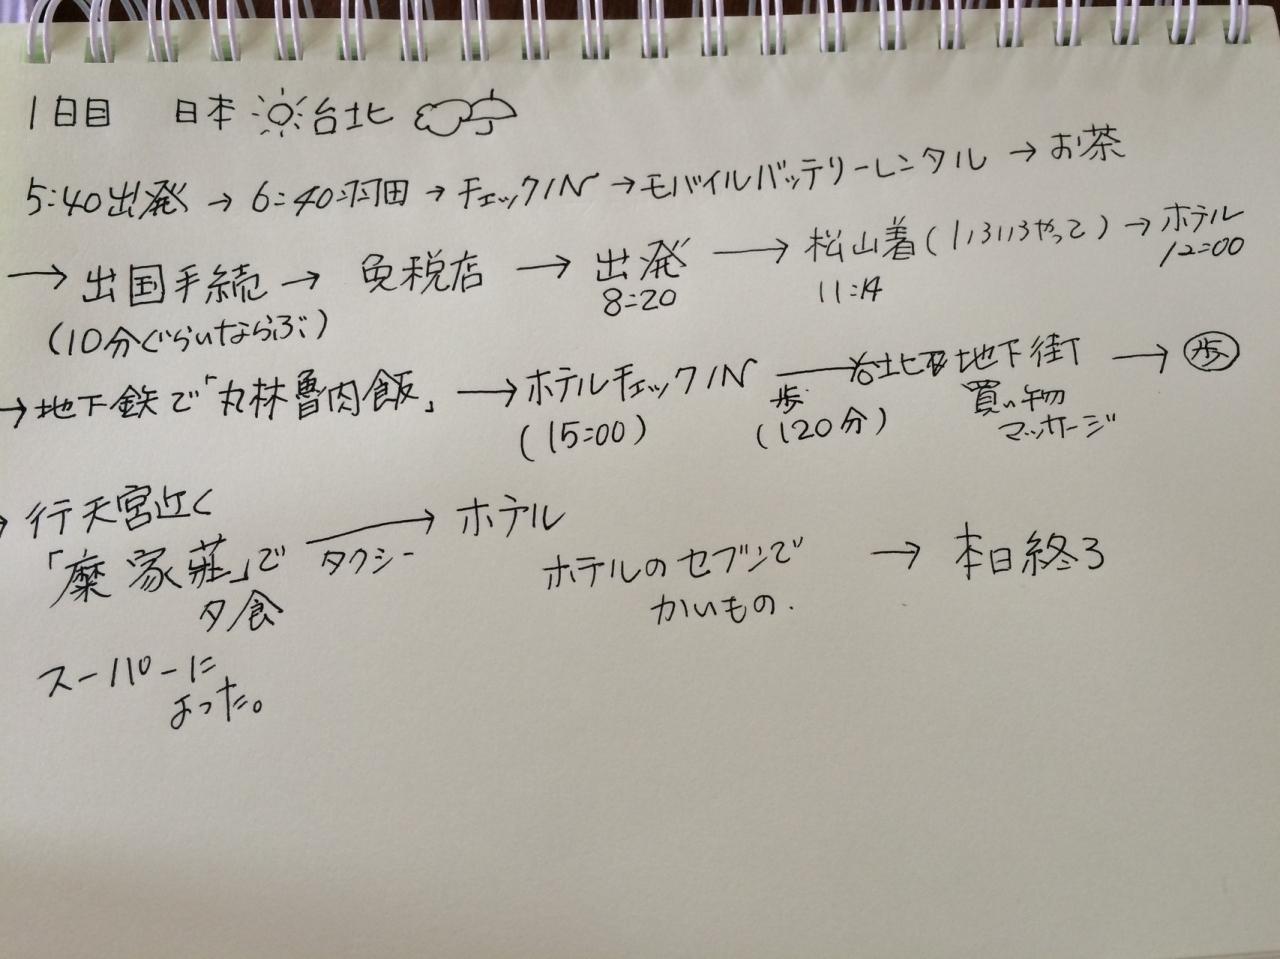 1日目 日本 台北
5:40出発 → 6:40羽田 → チェックIN → モバイルバッテリーレンタル → お茶
→ 出国手続 → 免税店 → 出発 → 松山着(いろいろやって) → ホテル
8:20 11:14 12:00
(10分ぐらいならぶ)
→ 地下鉄で「丸林魯肉飯」 → ホテルチェックIN → 台北 地下街 → 歩
(15:00) 歩 (120分) 買い物
マッサージ
→ 行天宮近く
「糜家荘」で タクシー → ホテル
夕食
ホテルのセブンで → 本日終了
かいもの.
スーパーに
よった。